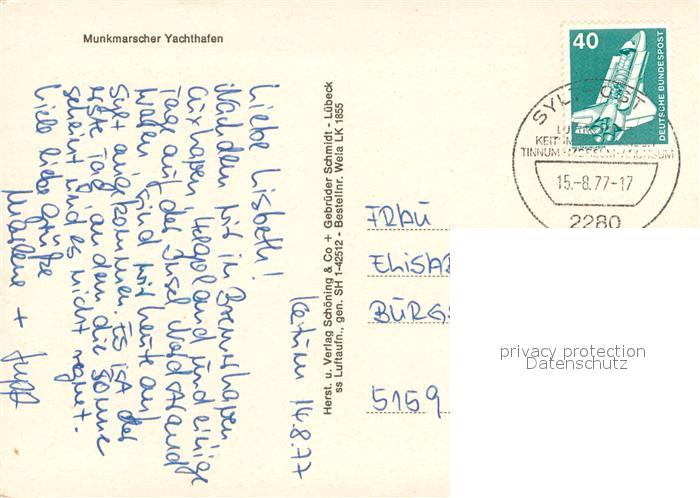 Munkmarscher Yachthafen
Keitum 14.8.77
Liebe Lisbeth!
Nachdem wir in Bremerhaven,
Cuxhaven, Helgoland und einige
Tage auf der Insel Nordstrand
waren sind wir heute auf
Sylt angekommen. Es ist der
erste Tag, an dem die Sonne
scheint und es nicht regnet.
Viele liebe Grüße
Marlene +
Herst. u. Verlag Schöning & Co + Gebrüder Schmidt - Lübeck
ss Luftaufn., gen. SH 1-42512 - Bestellnr. Wela LK 1855
40
DEUTSCHE BUNDESPOST
SYLT-OST
KEITUM
TINNUM
15.-8.77-17
2280
FRAU
ELISAB
BURGS
5159
privacy protection
Datenschutz